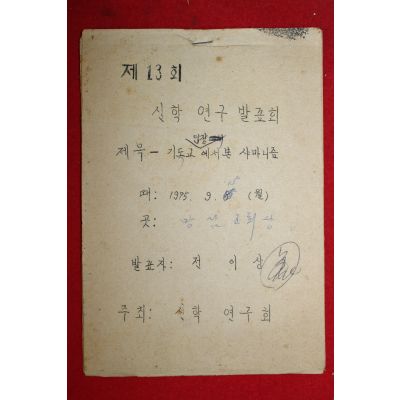 제 13 회
신학 연구 발표회
입장
제목 - 기독교 에서본 샤마니즘
때: 1975. 9. (월)
곳:
발표자: 전 이 상
주최: 신학 연구회